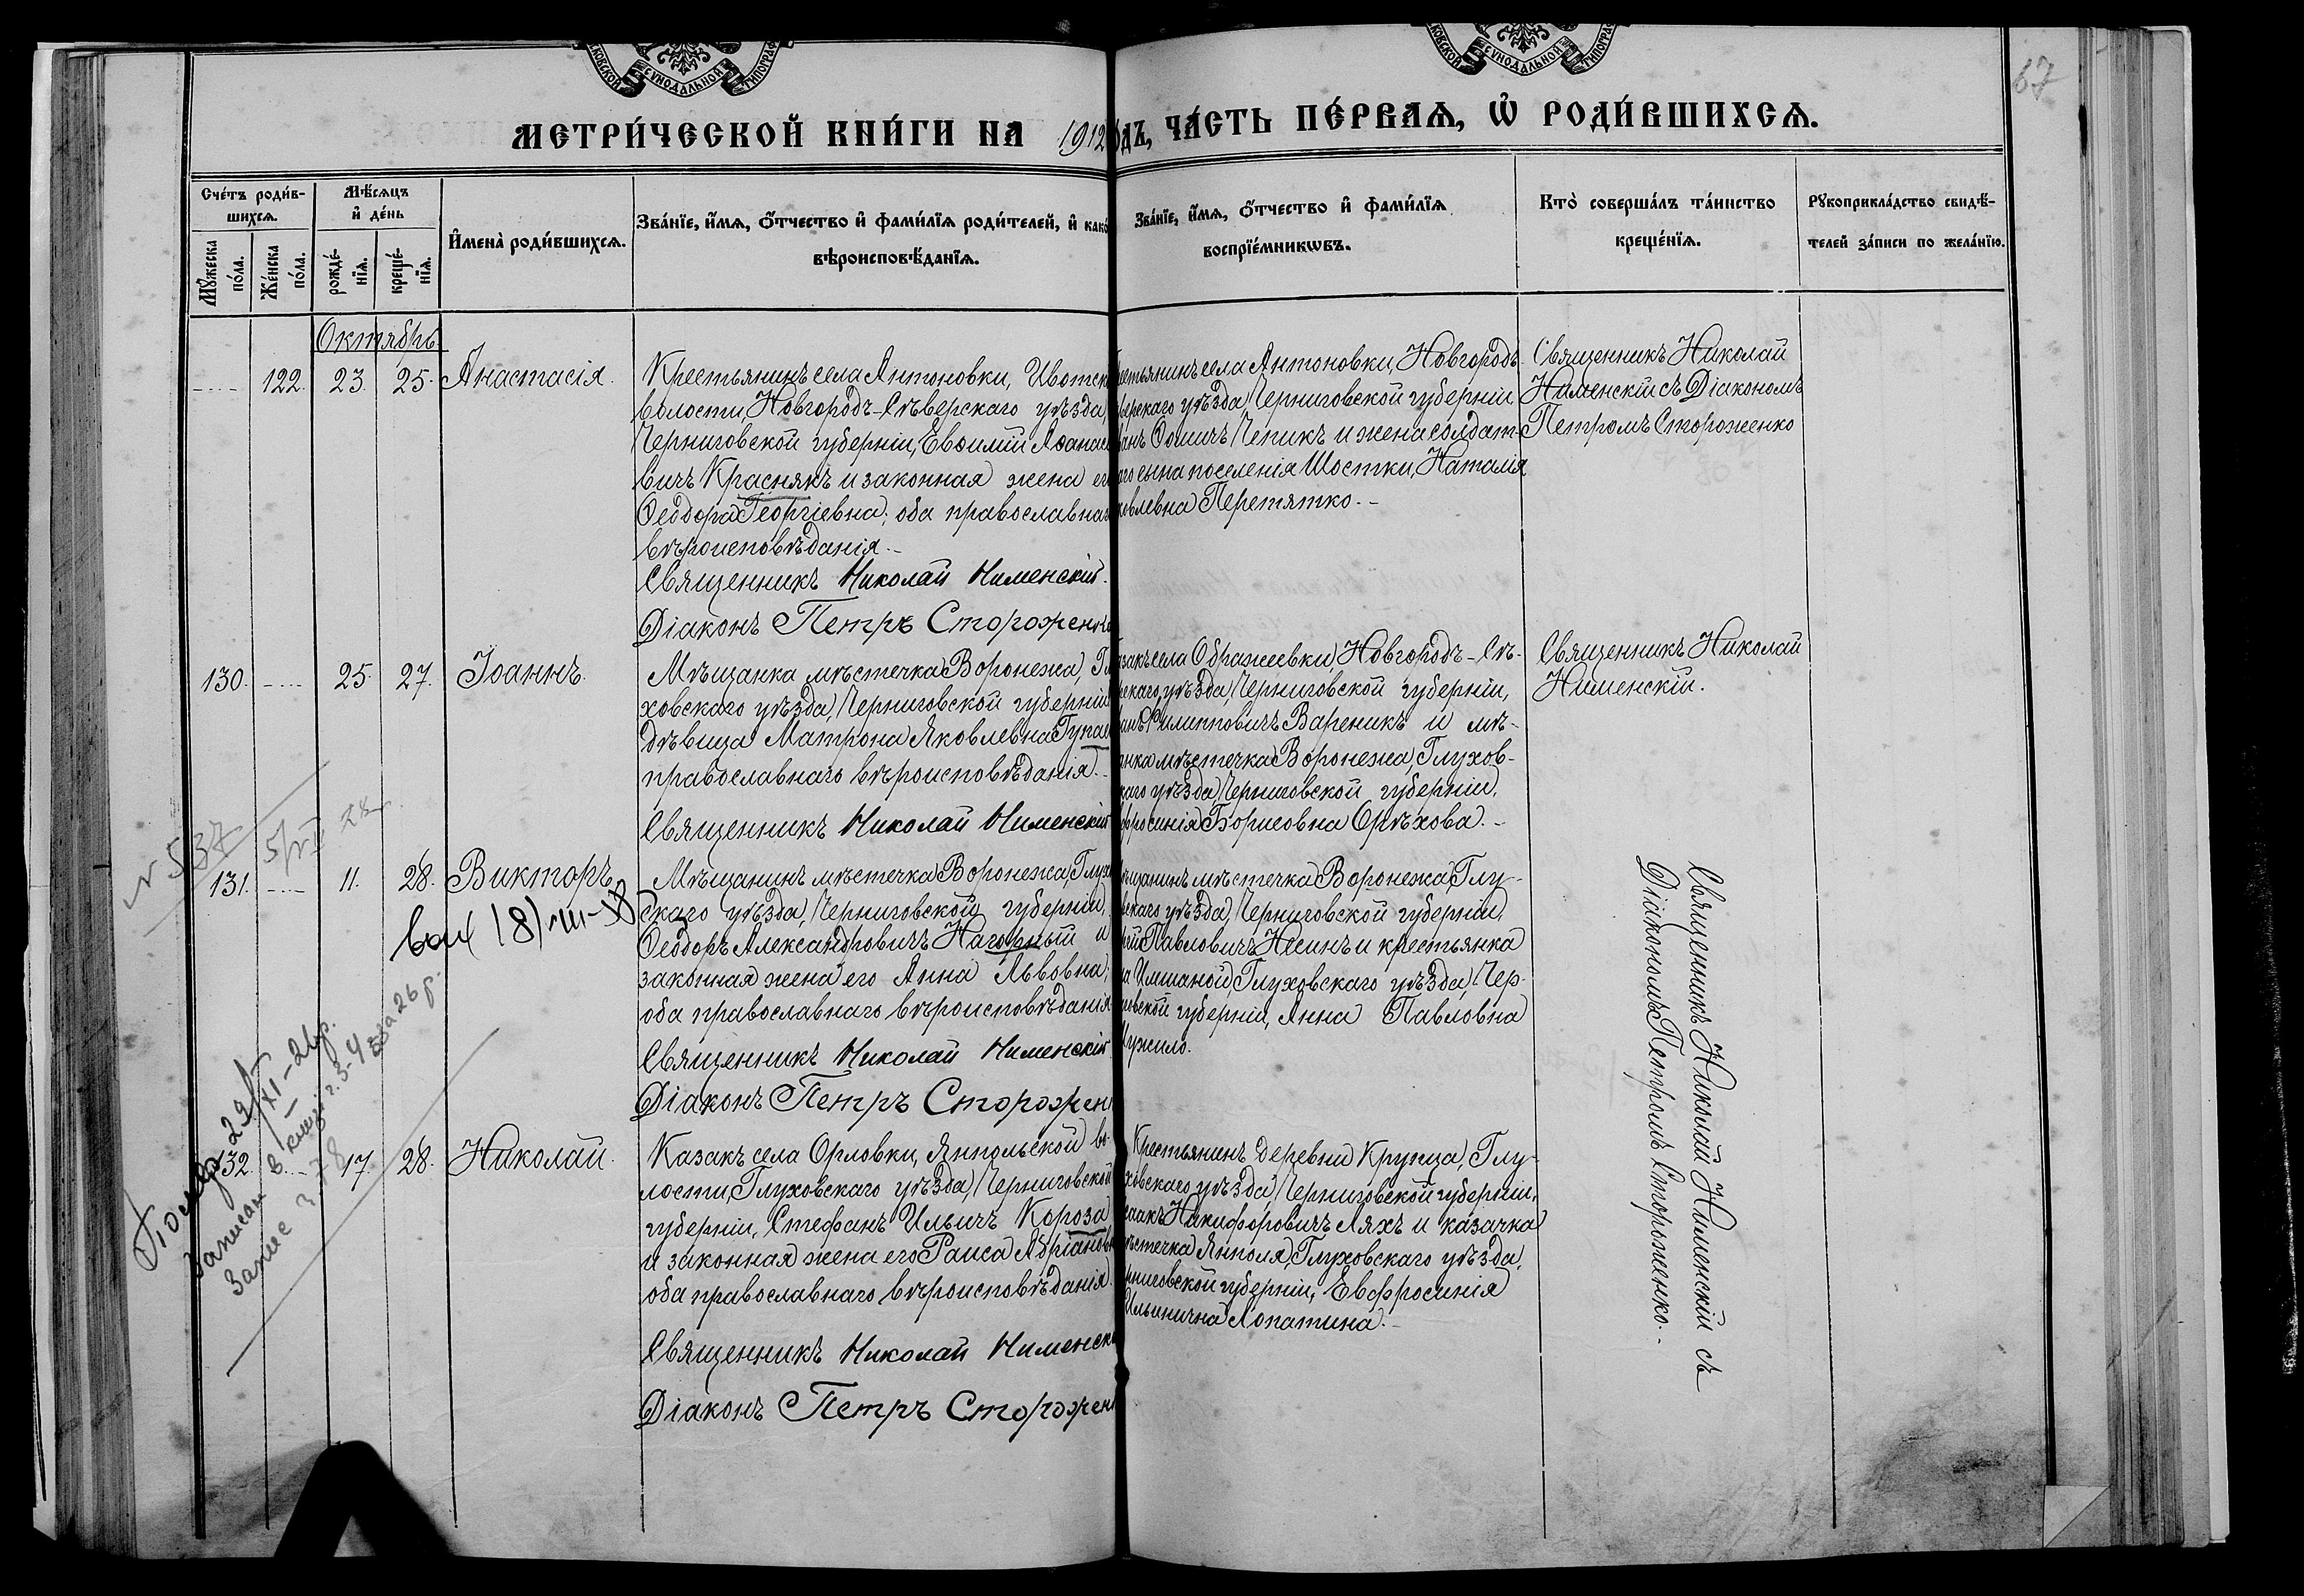 МЕТРИ́ЧЕСКОЙ КНИ́ГИ НА 1912
ЧА́СТЬ ПЕ́РВАЯ, Ѡ РОДИ́ВШИХСЯ.
67
Сче́тъ роди́в-
шихся.
Мѣ́сяцъ
и҆ де́нь
Мꙋ́жеска
по́ла.
Же́нска
по́ла.
рожде́-
нїя.
креще́-
нїя.
И҆мена̀ роди́вшихся.
Зва́нїе, и҆́мя, ѻ҆́тчество и҆ фами́лїя роди́телей, и҆ како́
вѣроисповѣ́данїя.
Зва́нїе, и҆́мя, ѻ҆́тчество и҆ фами́лїя
воспрїе́мникѡвъ.
Кто̀ соверша́лъ та́инство
креще́нїя.
Рꙋкоприкла́дство свидѣ́-
телей за́писи по жела́нїю.
Октябрь.
122. 23. 25. Анастасія.
Крестьянинъ села Антоновки, Ивотск
волости Новгородъ-Сѣверскаго уѣзда,
Черниговской губерніи, Евѳимій Аѳанасе
вичъ Краснякъ и законная жена ег
Ѳеодора Георгіевна; оба православнаг
вѣроисповѣданія.–
Священникъ Николай Нименскій.
Діаконъ Петръ Стороженко
естьянинъ села Антоновки, Новгородъ-
верскаго уѣзда, Черниговской губерніи
ванъ Ѳомичъ Чепикъ и жена солдат-
аго сына поселенія Шостки, Наталія
ковлевна Перетятко.–
Священникъ Николай
Нименскій съ Діакономъ
Петромъ Стороженко
130. 25. 27. Іоаннъ.
Мѣщанка мѣстечка Воронежа, Глу
ховскаго уѣзда, Черниговской губерніи
дѣвица Матрона Яковлевна
православнаго вѣроисповѣданія.–
Священникъ Николай Нименскій
закъ села Ображеевки, Новгородъ-Сѣ-
рскаго уѣзда, Черниговской губерніи,
Филипповичъ Вареникъ и мѣ-
анка мѣстечка Воронежа, Глухов-
каго уѣзда, Черниговской губерніи,
фросинія Борисовна Орѣхова.–
Священникъ Николай
Нименскій.
N 537
131. 11. 28. Викторъ.
Мѣщанинъ мѣстечка Воронежа, Глухо
скаго уѣзда, Черниговской губерніи,
Ѳеодоръ Александровичъ Нагорный и
законная жена его Анна Львовна;
оба православнаго вѣроисповѣданія
Священникъ Николай Нименскій
Діаконъ Петръ Стороженк
щанинъ мѣстечка Воронежа, Глу-
скаго уѣзда, Черниговской губерніи,
Павловичъ Несинъ и крестьянка
а Глуховскаго уѣзда, Чер-
овской губерніи, Анна Павловна
Священникъ Николай Нименскій съ
Діакономъ Петромъ Стороженко.–
32. 17. 28. Николай.
Казакъ села Орловки, Янпольской во-
лости, Глуховскаго уѣзда, Черниговской
губерніи, Стефанъ Ильичъ Короза
и законная жена его Раиса Адріанов
оба православнаго вѣроисповѣданія.
Священникъ Николай Нименск
Діаконъ Петръ Стороженк
Крестьянинъ деревни Крупца, Глу-
ховскаго уѣзда, Черниговской губерніи,
саакъ Никифоровичъ Ляхъ и казачка
ѣстечка Янполя, Глуховскаго уѣзда,
рниговской губерніи, Евфросинія
Ильинична Лопатина.–